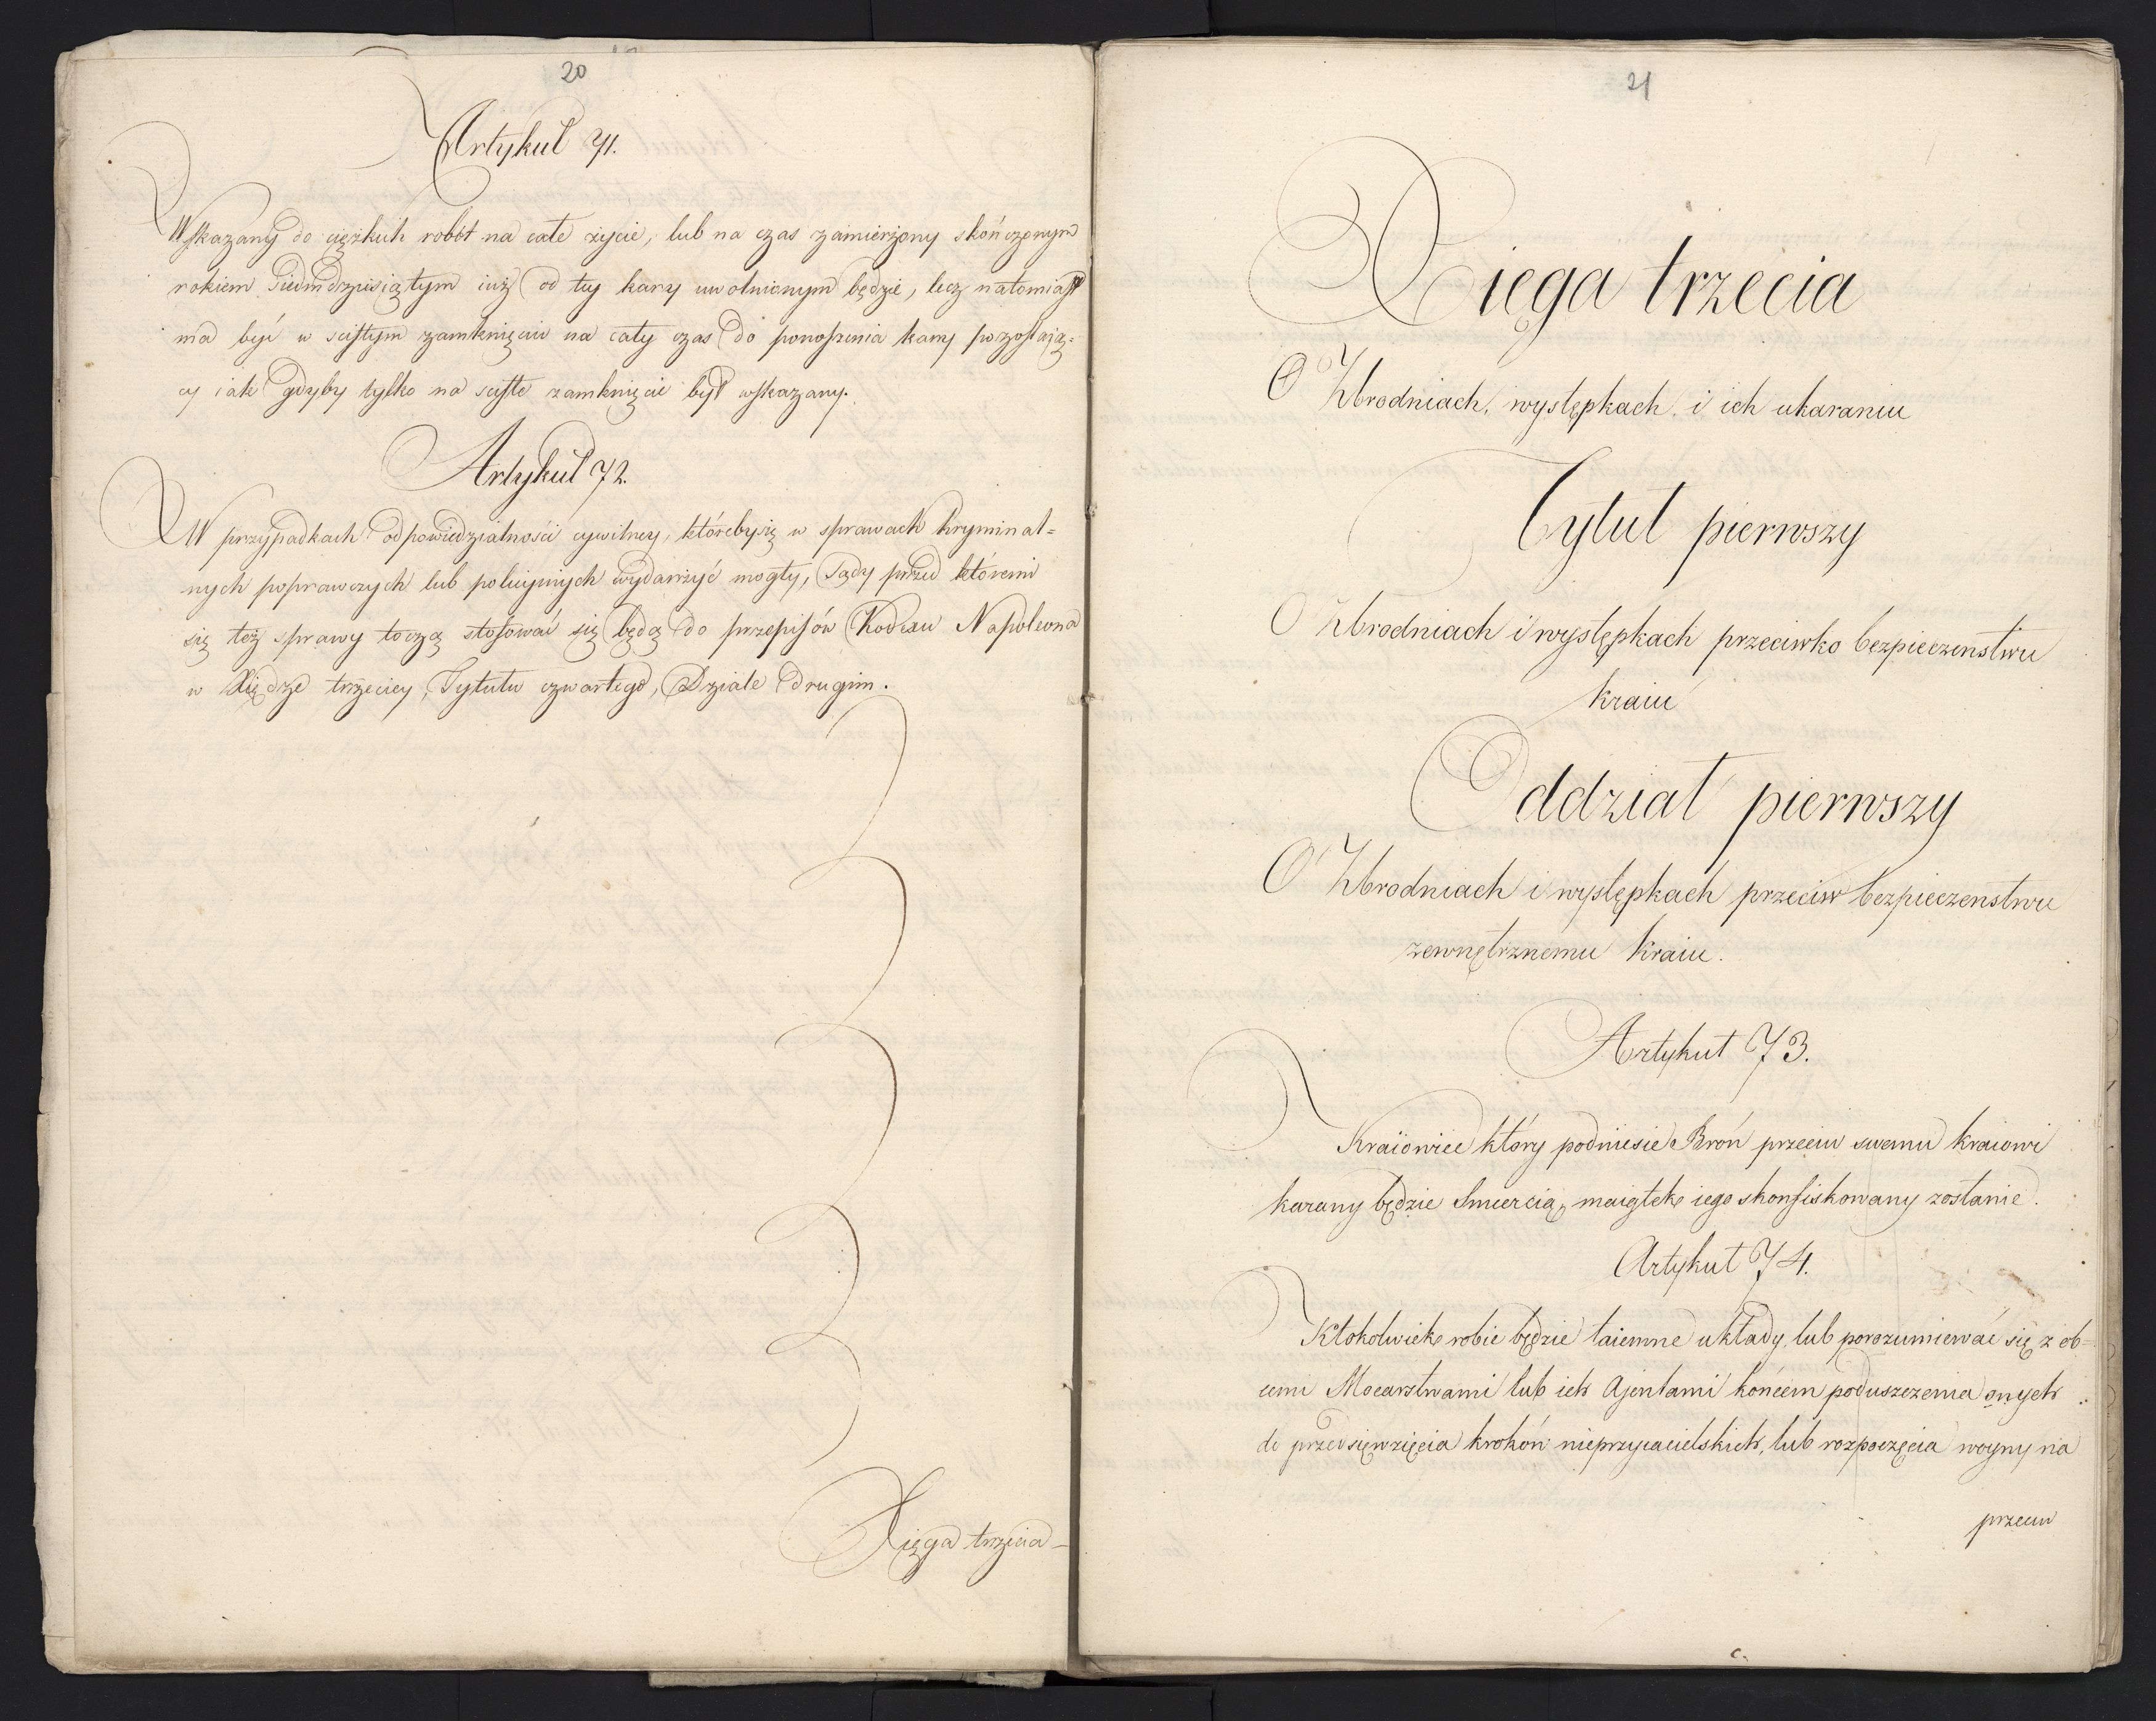 20
Artykuł 71.
Wskazany do ciężkich robót na całe życie, lub na czas zamierzony skończonym
rokiem siedmdziesiątym iuż od tey kary uwolnionym będzie, lecz natomiast
ma być w scisłym zamknięciu na cały czas do ponoszenia kary pozostaią=
cy iak gdyby tylko na scisłe zamknięcie był wskazany.
Artykuł 72.
W przypadkach odpowiedzialności cywilney, któreby się w sprawach kryminal=
nych poprawczych lub policyinych wydarzyć mogły, Sądy przed któremi
się też sprawy toczą stosować się będą do przepisów Kodexu Napoleona
w Xiędze trzeciey, Tytułu czwartego, Dziale drugim.
Xięga trzecia
21
Xięga trzecia
O Zbrodniach, występkach, i ich ukaraniu
Tytuł pierwszy
O Zbrodniach i występkach przeciwko bezpieczenstwu
kraiu
Oddział pierwszy
O Zbrodniach i występkach przeciw bezpieczenstwu
zewnętrznemu kraiu.
Artykuł 73.
Kraiowiec który podniesie Broń przeciw swemu kraiowi
karany będzie Smiercią, maiątek iego skonfiskowany zostanie.
Artykuł 74.
Ktokolwiek robić będzie taiemne układy, lub porozumiewać się z ob=
cemi Mocarstwami lub ich Ajentami końcem poduszczenia onych
do przedsięwzięcia kroków nieprzyiacielskich, lub rozpoczęcia woyny na
przeciw